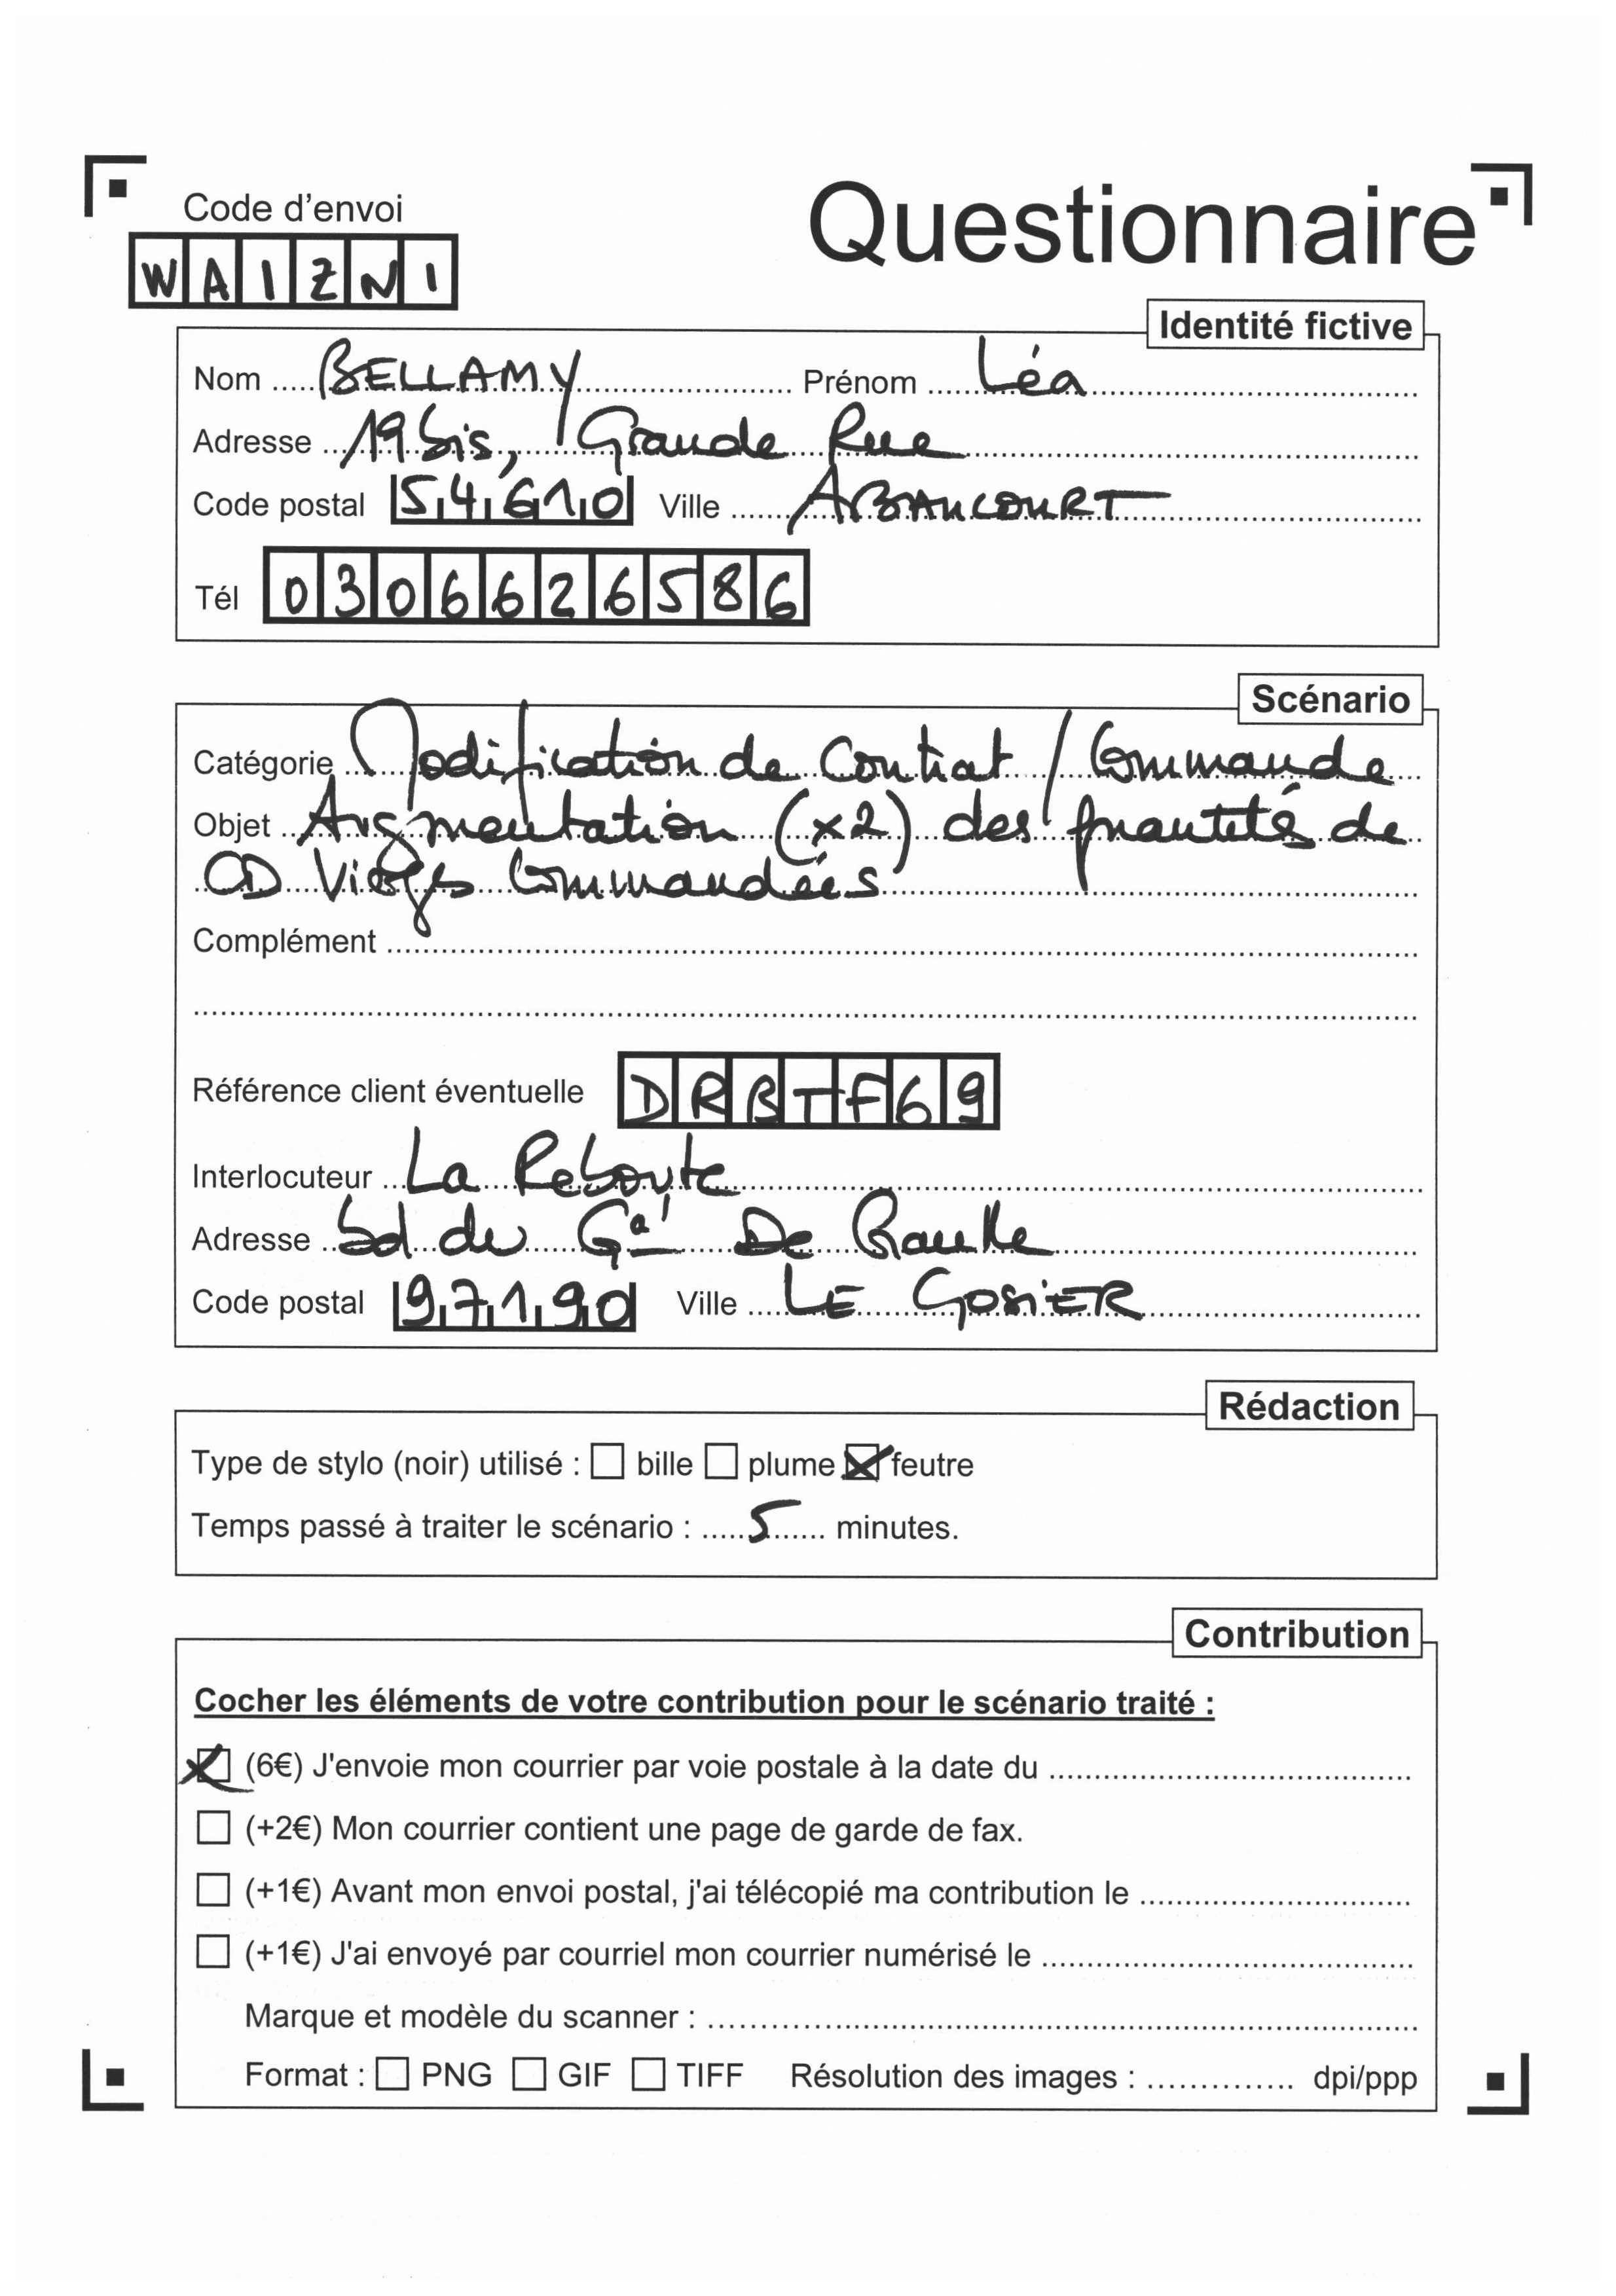 Code d'envoi
Questionnaire
WAIZNI
Identité fictive
Nom BELLAMY Prénom Léa
Adresse 19 bis, Grande Rue
Code postal 54610 Ville ABANCOURT
Tél 0306626586
Scénario
Catégorie Modification de Contrat / Commande
Objet Augmentation (x2) des quantités de
CD Vierges Commandées
Complément
Référence client éventuelle DRBTF69
Interlocuteur La Reboute
Adresse Bd du Gal De Gaulle
Code postal 97190 Ville LE GOSIER
Rédaction
Type de stylo (noir) utilisé : bille plume feutre
Temps passé à traiter le scénario : 5 minutes.
Contribution
Cocher les éléments de votre contribution pour le scénario traité :
(6€) J'envoie mon courrier par voie postale à la date du
(+2€) Mon courrier contient une page de garde de fax.
(+1€) Avant mon envoi postal, j'ai télécopié ma contribution le
(+1€) J'ai envoyé par courriel mon courrier numérisé le
Marque et modèle du scanner :
Format : PNG GIF TIFF Résolution des images : dpi/ppp